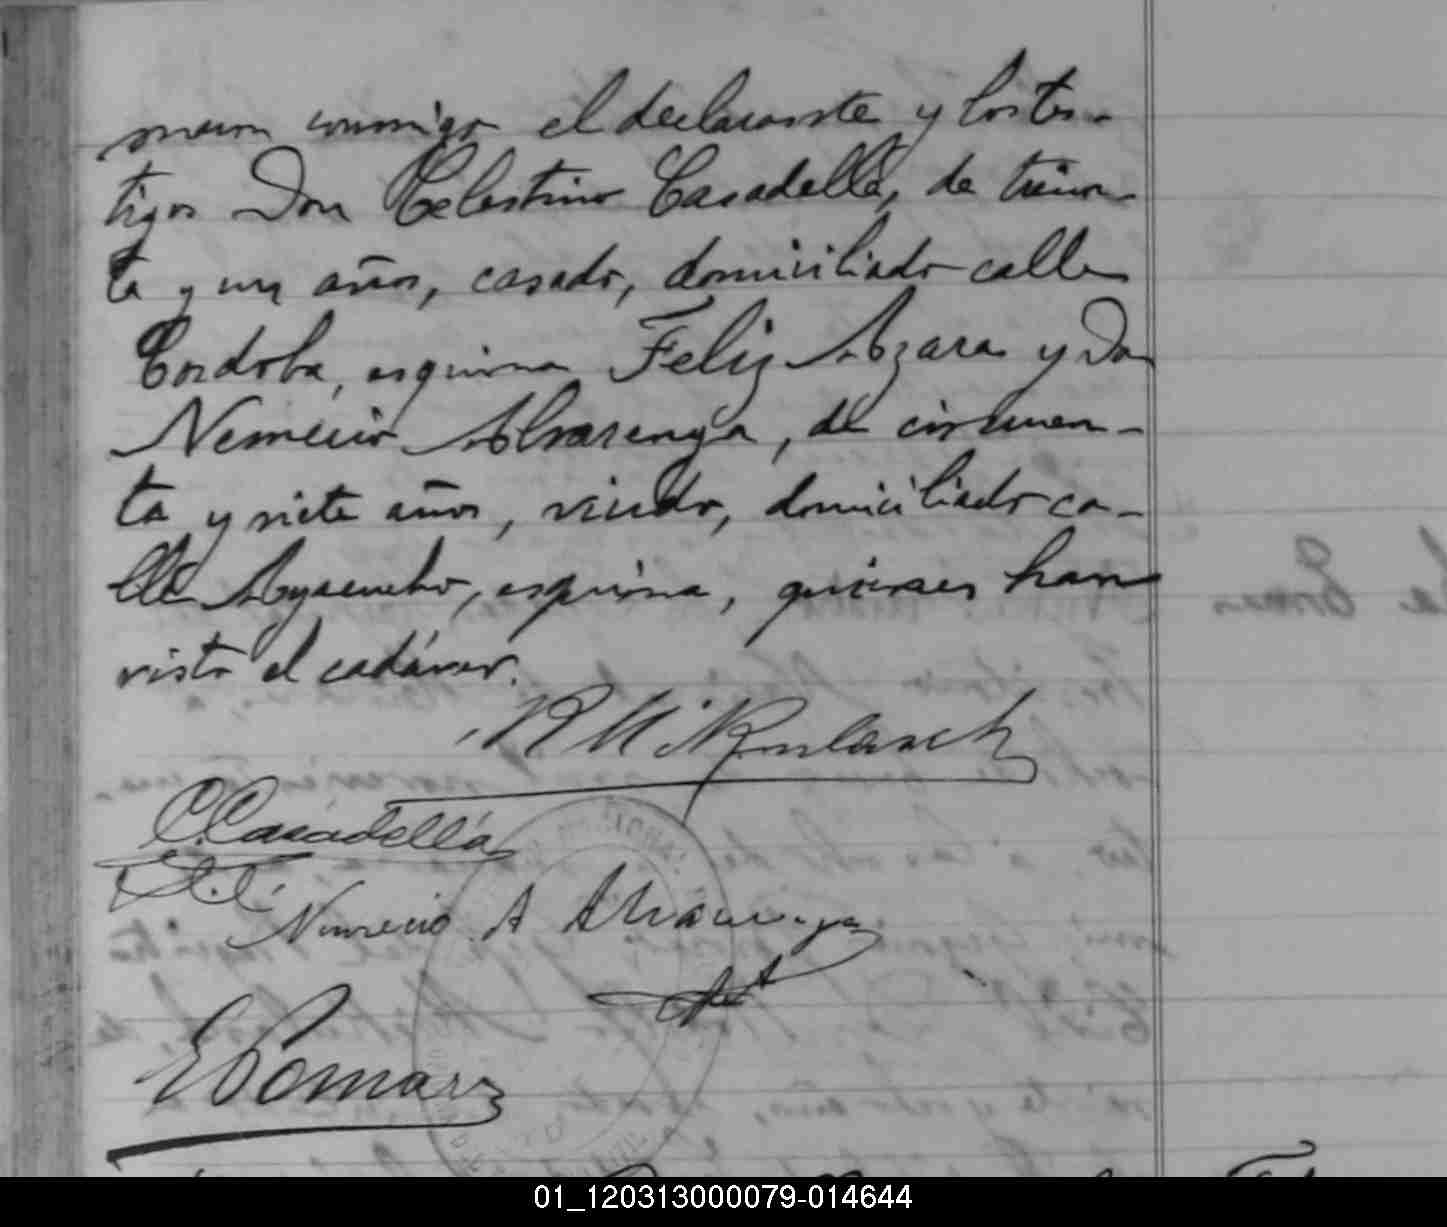 maron conmigo el declarante y los tes-
tigos Don Celestino Casadellá, de trein-
ta y un años, casado, domiciliado calle
Cordoba, esquina Feliz Azara y Don
Nemecio Alvarenga, de cincuen-
ta y siete años, viudo, domiciliado ca-
lle Ayacucho, esquina, quienes han
visto el cadáver.
C. Casadellá
Nemecio A Alvarenga
E Pomar
01_120313000079-014644